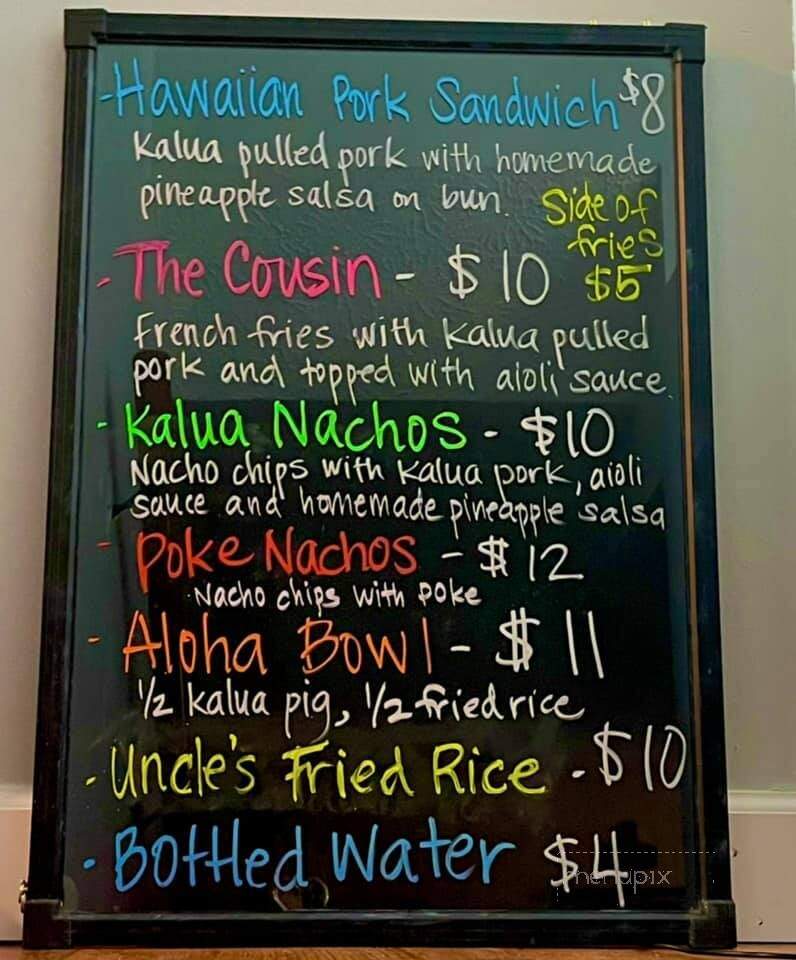 -Hawaiian Pork Sandwich $8
Kalua pulled pork with homemade
pineapple salsa on bun.
Side of
fries
$5
- The Cousin - $10
French fries with Kalua pulled
pork and topped with aioli sauce.
- Kalua Nachos - $10
Nacho chips with Kalua pork, aioli
sauce and homemade pineapple salsa
- Poke Nachos - $12
Nacho chips with poke
- Aloha Bowl - $11
1/2 kalua pig, 1/2 fried rice
- Uncle's Fried Rice - $10
- Bottled Water $4
menupix